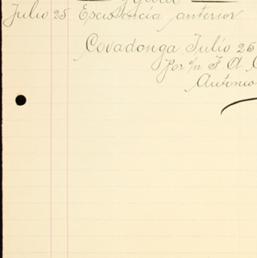 Julio 25 Escistencia anterior
Covadonga Julio 25
Por o/n F A
Antonio